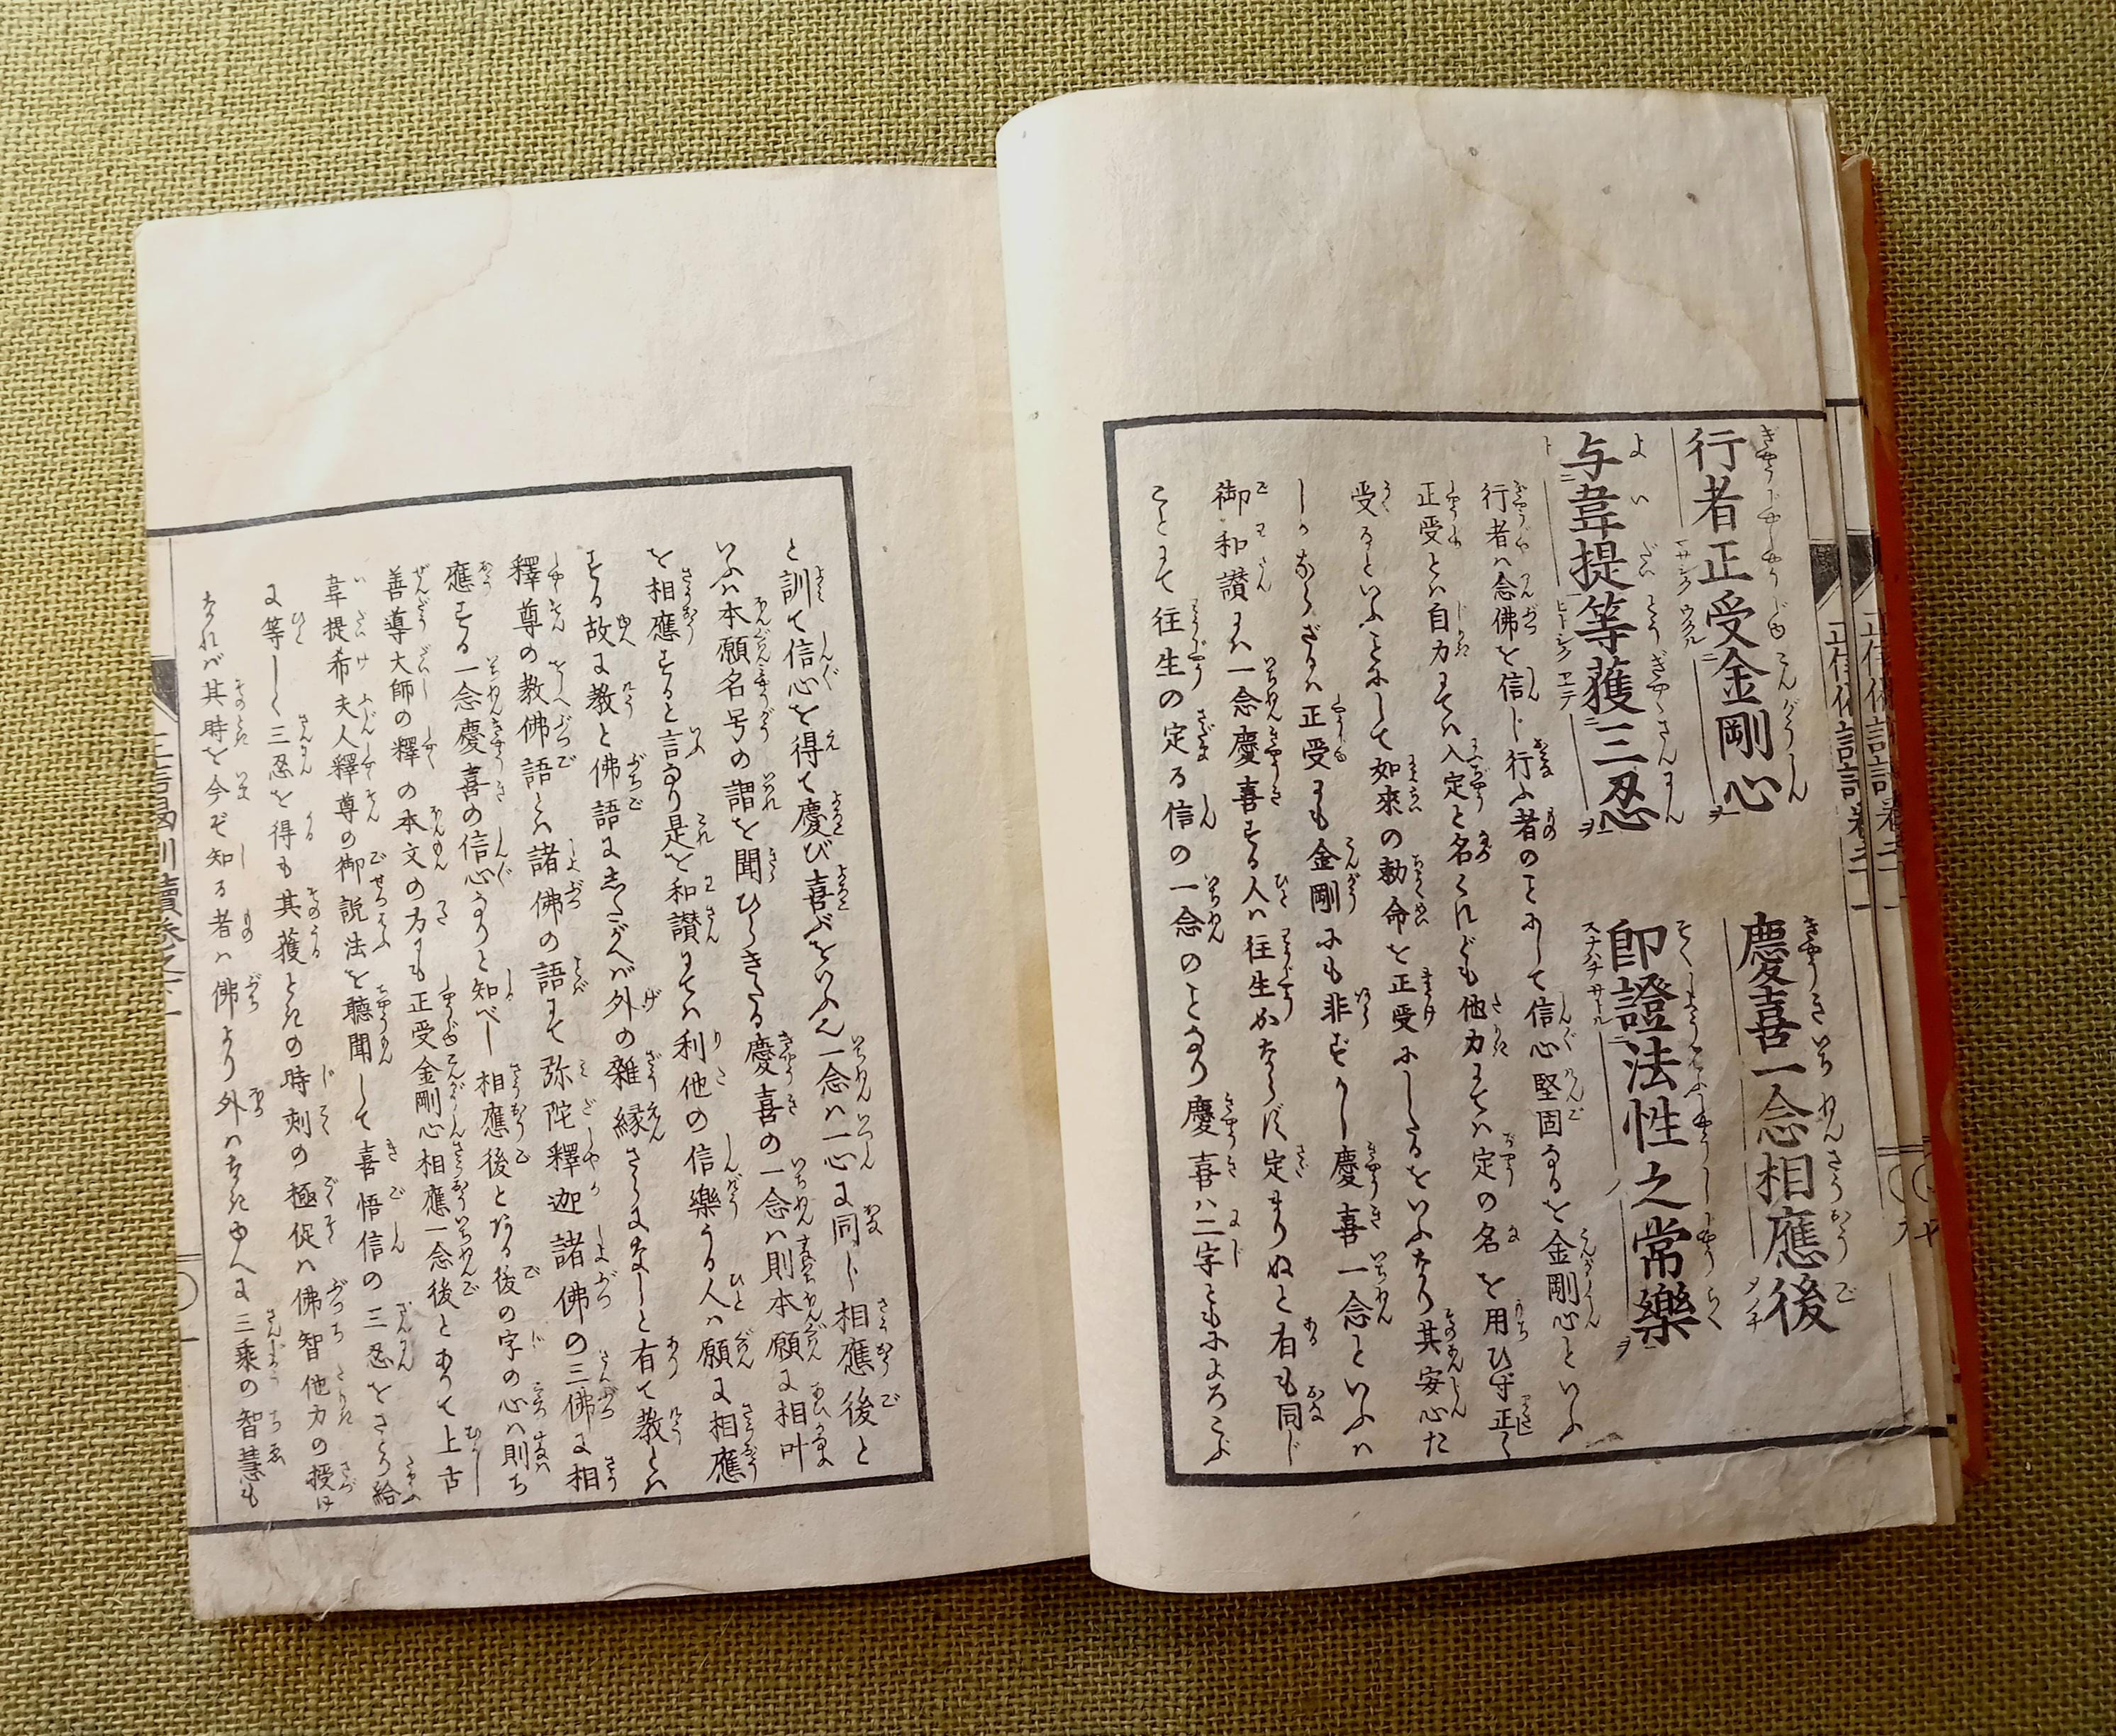 行者正受金剛心　慶喜一念相應後
与韋提等獲三忍　即證法性之常樂
行者ハ念佛を信じ行ふ者のことにして信心堅固なるを金剛心といふ
正受とハ自力にてハ入定と名くれども他力にてハ定の名を用ひず正しく
受るといふことにして如來の勅命を正受にしたるをいふなり其安心た
しかならざるハ正受にも金剛にも非ずかし慶喜一念といふハ
御和讃にハ一念慶喜する人ハ往生かならず定まりぬと有も同じ
ことにて往生の定る信の一念のことなり慶喜ハ二字ともによろこぶ
と訓て信心を得て慶び喜ぶをいふ一念ハ一心に同じ相應後と
いふハ本願名号の謂を聞ひらきたる慶喜の一念ハ則本願に相叶
を相應すると言なり是を和讃にてハ利他の信樂うる人ハ願に相應
する故に教と佛語にしたがへバ外の雜縁さらになしと有て教とハ
釋尊の教佛語とハ諸佛の語にて弥陀釋迦諸佛の三佛に相
應する一念慶喜の信心なりと知べし相應後とある後の字の心ハ則ち
善導大師の釋の本文の方にも正受金剛心相應一念後とありて上古
韋提希夫人釋尊の御説法を聽聞して喜悟信の三忍をさとり給
に等しく三忍を得も其獲ときの時刻の極促ハ佛智他力の授け
なれバ其時を今ぞ知る者ハ佛より外ハなきゆへに三乘の智慧も